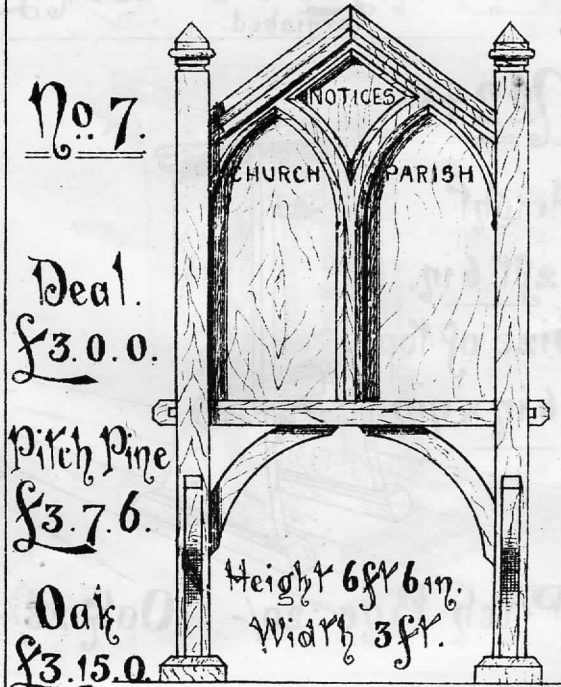 No. 7.
NOTICES
CHURCH PARISH
Deal.
£3.0.0.
Pitch Pine
£3.7.6.
Oak
£3.15.0.
Height 6ft 6in.
Width 3ft.